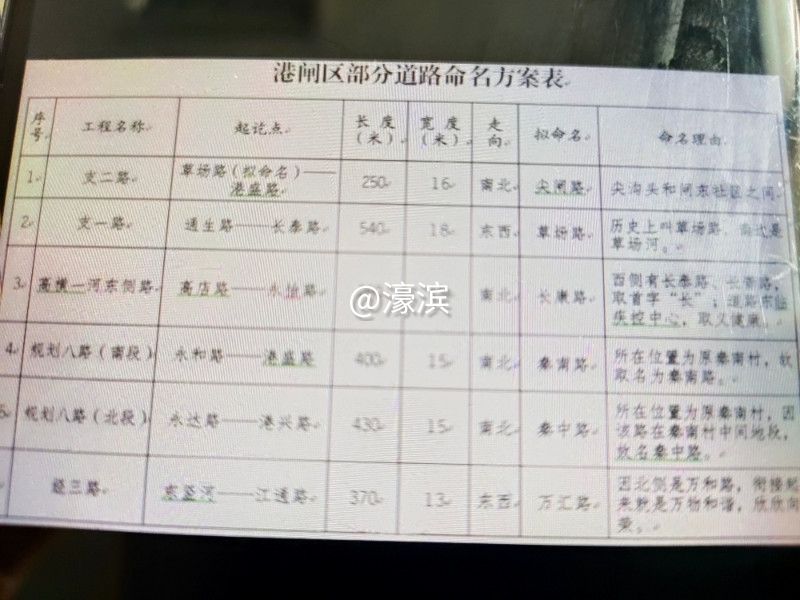 港闸区部分道路命名方案表
序号 工程名称 起讫点 长度（米） 宽度（米） 走向 拟命名 命名理由
1 支二路 草场路（拟命名）——港盛路 250 16 南北 尖闸路 尖沟头和闸东社区之间
2 支一路 通生路——长泰路 540 18 东西 草场路 历史上叫草场路，南北是草场河。
3 高横一河东侧路 高店路——永怡路 南北 长康路 西侧有长泰路、长青路，取首字“长”；道路东临疾控中心，取义健康。
@濠滨
4 规划八路（南段） 永和路——港盛路 400 15 南北 秦南路 所在位置为原秦南村，故取名为秦南路。
5 规划八路（北段） 永达路——港兴路 430 15 南北 秦中路 所在位置为原秦南村，因该路在秦南村中间地段，故名秦中路。
经三路 东竖河——江通路 370 13 东西 万汇路 因北侧是万和路，衔接起来就是万物和谐，欣欣向荣。